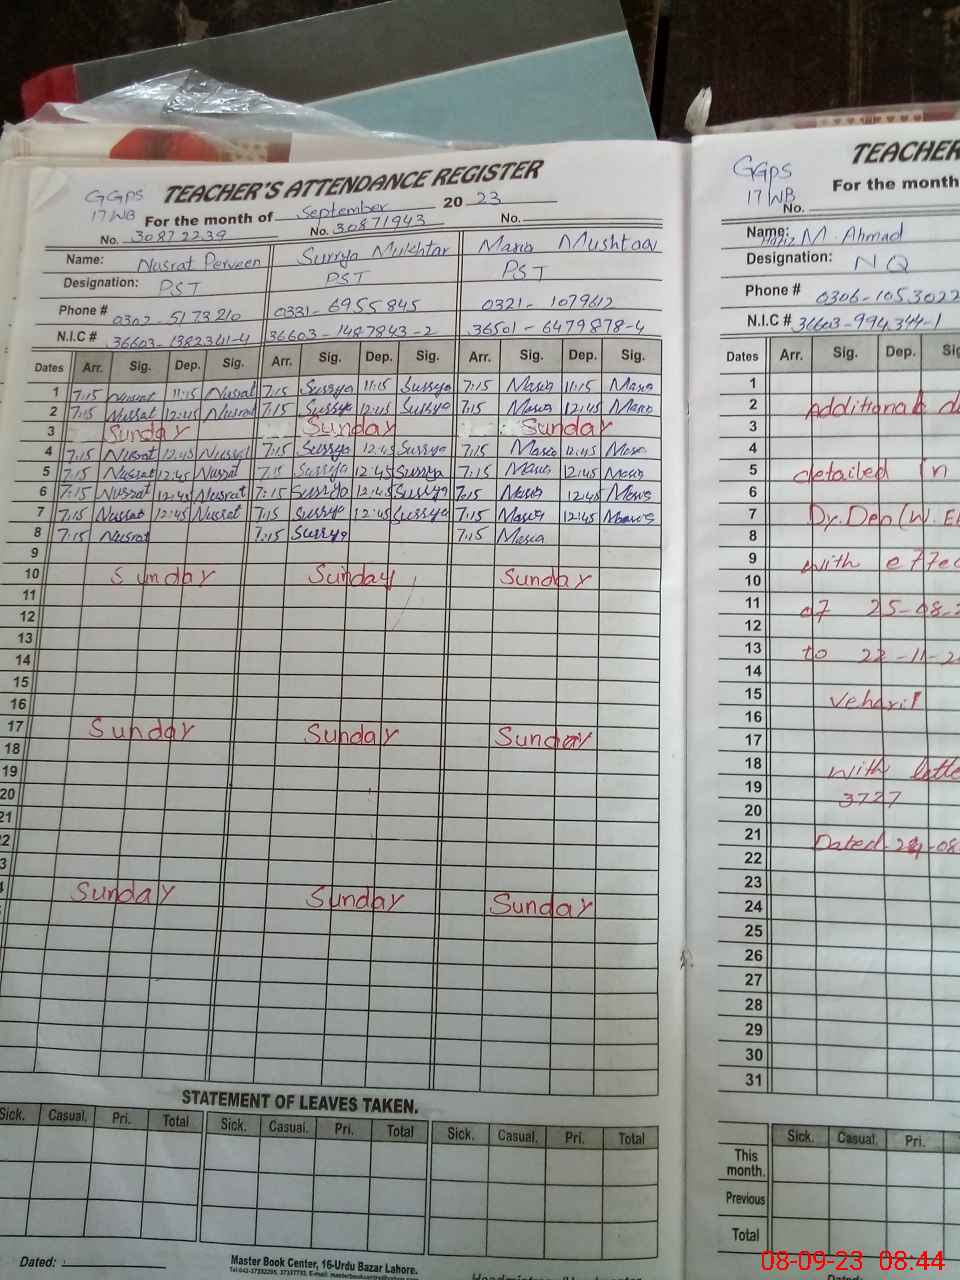 GGPS
17/WB
TEACHER'S ATTENDANCE REGISTER
For the month of September 2023
No. 30872239 No. 30871943 No.
Name: Nusrat Perveen Surrya Mukhtar Maria Mushtaq
Designation: PST PST PST
Phone # 0302-5173210 0331-6955845 0321-1079612
N.I.C # 36603-1382341-4 36603-1487843-2 36501-6479878-4
Dates Arr. Sig. Dep. Sig. Arr. Sig. Dep. Sig. Arr. Sig. Dep. Sig.
1 7:15 Nusrat 11:15 Nusrat 7:15 Surrya 11:15 Surrya 7:15 Maria 11:15 Maria
2 7:15 Nusrat 12:45 Nusrat 7:15 Surrya 12:45 Surrya 7:15 Maria 12:45 Maria
3 Sunday Sunday Sunday
4 7:15 Nusrat 12:45 Nusrat 7:15 Surrya 12:45 Surrya 7:15 Maria 12:45 Maria
5 7:15 Nusrat 12:45 Nusrat 7:15 Surrya 12:45 Surrya 7:15 Maria 12:45 Maria
6 7:15 Nusrat 12:45 Nusrat 7:15 Surrya 12:45 Surrya 7:15 Maria 12:45 Maria
7 7:15 Nusrat 12:45 Nusrat 7:15 Surrya 12:45 Surrya 7:15 Maria 12:45 Maria
8 7:15 Nusrat 7:15 Surrya 7:15 Maria
9
10 Sunday Sunday Sunday
11
12
13
14
15
16
17 Sunday Sunday Sunday
18
19
20
21
Sunday Sunday Sunday
STATEMENT OF LEAVES TAKEN.
Sick. Casual. Pri. Total Sick. Casual. Pri. Total Sick. Casual. Pri. Total
Dated:
Master Book Center, 16-Urdu Bazar Lahore.
GGPS
17/WB
TEACHER
For the month
No.
Name: Hafiz M. Ahmad
Designation: NQ
Phone # 0306-1053022
N.I.C # 36603-994344-1
Dates Arr. Sig. Dep.
1
2 Additional
3
4
5 detailed in
6
7 Dy. Deo (W. E
8
9 with effec
10
11 of 25-08-2
12
13 to 22-11-2
14
15 Vehari
16
17
18 with lette
19 3727
20
21 Dated
22
23
24
25
26
27
28
29
30
31
Sick. Casual. Pri.
This month.
Previous
Total
08-09-23 08:44